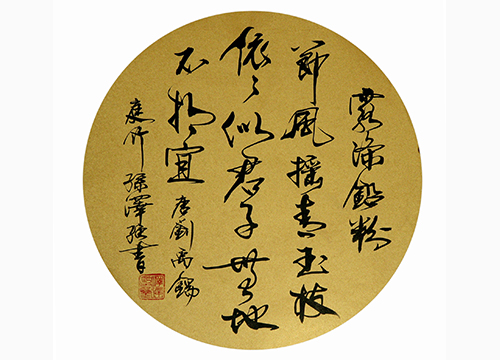 露滌鉛粉
節風搖青玉枝
依〻似君子無地
不相宜 唐劉禹錫
庭竹 孫澤書